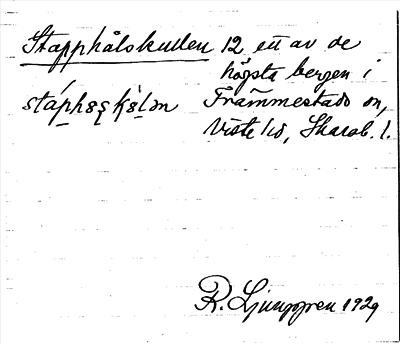 Stapphålskullen 12 ett av de
högsta bergen i
Främmestads sn,
Viste hd, Skarab. l.
stáphsȩkùlən
R. Ljunggren 1929